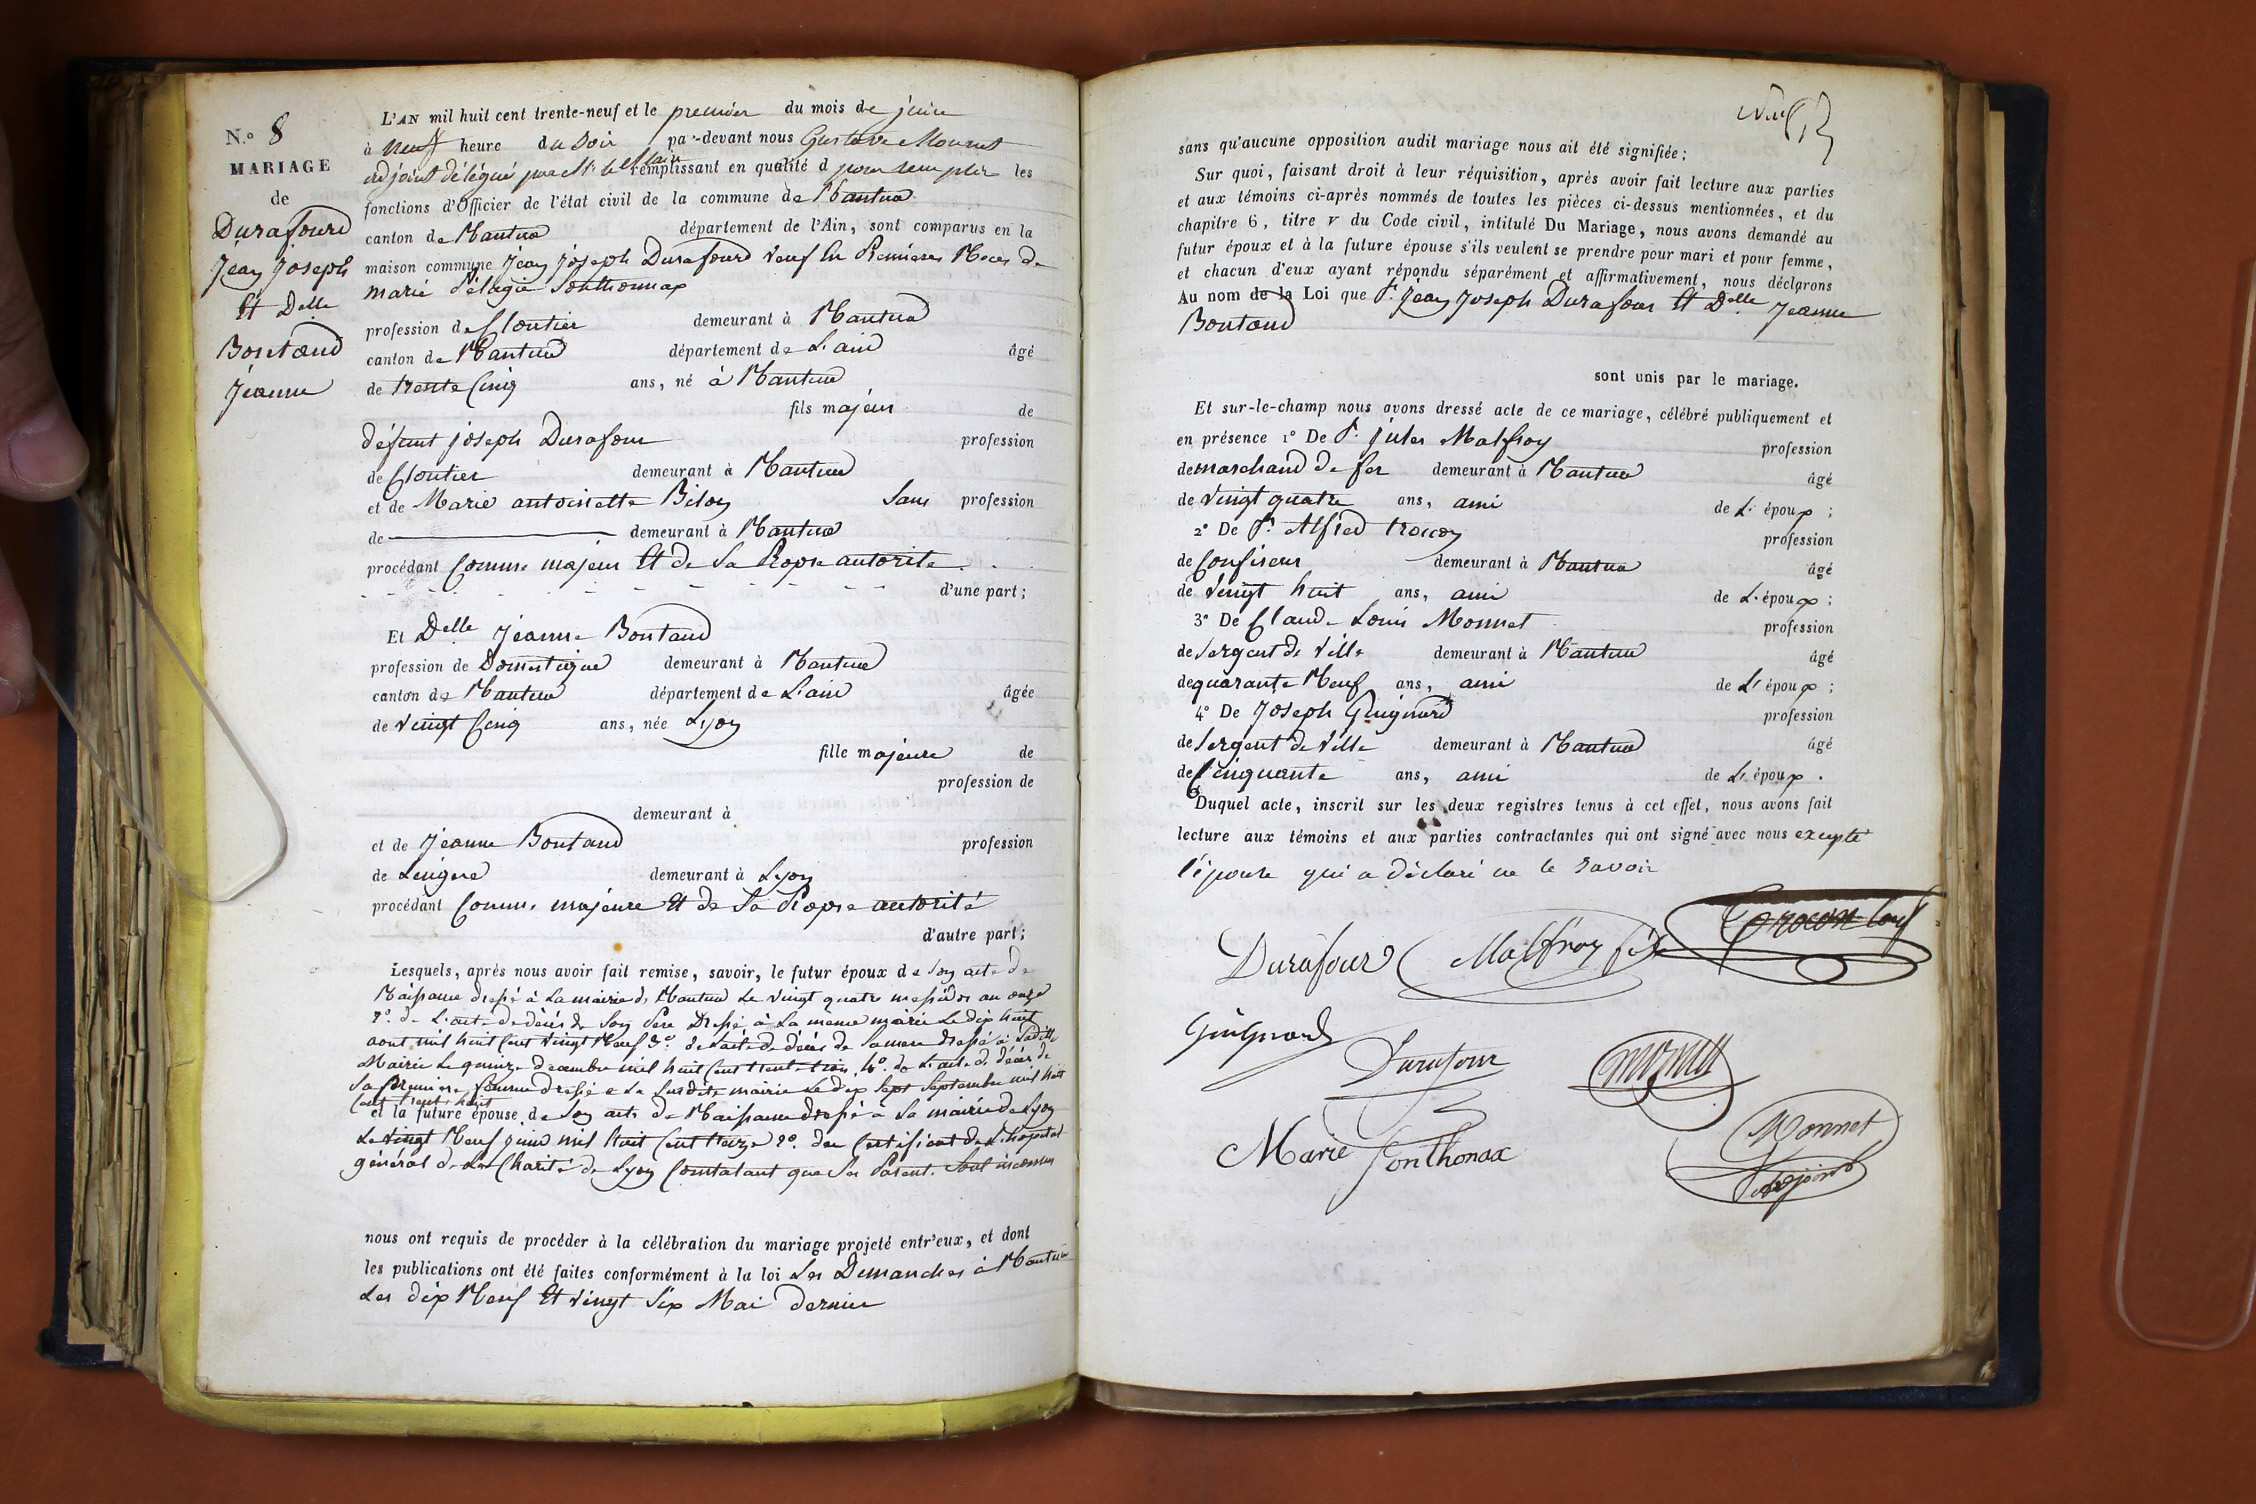 N.° 8
MARIAGE
de
Durafourd
Jean Joseph
Et Delle
Boutaud
Jeanne
L'AN mil huit cent trente-neuf et le premier du mois de juin
à neuf heure du Soir par-devant nous Gustave Monnet
adjoint délégué par Mr. le Maire remplissant en qualité d pour remplir les
fonctions d'Officier de l'état civil de la commune de Nantua
canton de Nantua département de l'Ain, sont comparus en la
maison commune Jean Joseph Durafourd Veuf En Premières Noces de
marie Pélagie Sonthonnax
profession de Cloutier demeurant à Nantua
canton de Nantua département de L'ain âgé
de trente Cinq ans, né à Nantua
fils majeur de
défunt joseph Durafour profession
de Cloutier demeurant à Nantua
et de Marie antoinette Bilon Sans profession
de demeurant à Nantua
procédant Comme majeur Et de Sa Propre autorité
d'une part;
Et Delle Jeanne Boutaud
profession de Domestique demeurant à Nantua
canton de Nantua département de L'ain âgée
de Vingt Cinq ans, née Lyon
fille majeure de
profession de
demeurant à
et de Jeanne Boutaud profession
de Lingere demeurant à Lyon
procédant Comme majeure Et de Sa Propre autorité
d'autre part;
Lesquels, après nous avoir fait remise, savoir, le futur époux de Son acte de
Naissance dressé à La mairie de Nantua Le Vingt quatre messidor an onze
2°. de L'acte de décès de Son Père Dressé à La même mairie Le dix huit
aout mil huit Cent Vingt Neuf 3°. de L'acte de décès de Sa mere dressé à Ladite
Mairie Le quinze decembre mil huit Cent trente trois, 4°. de L'acte de décès de
Sa Premiere femme dressé a La Susdite mairie Le dix Sept Septembre mil huit
Cent trente huit
et la future épouse de Son acte de Naissance dressé a La mairie de Lyon
Le Vingt Neuf juin mil huit Cent treize 2°. du Certificat de L'hopital
général de La Charité de Lyon Constatant que Ses Parents Sont inconnus
nous ont requis de procéder à la célébration du mariage projeté entr'eux, et dont
les publications ont été faites conformément à la loi Les Dimanches à Nantua
Les dix Neuf Et Vingt Six Mai dernier
sans qu'aucune opposition audit mariage nous ait été signifiée;
Sur quoi, faisant droit à leur réquisition, après avoir fait lecture aux parties
et aux témoins ci-après nommés de toutes les pièces ci-dessus mentionnées, et du
chapitre 6, titre V du Code civil, intitulé Du Mariage, nous avons demandé au
futur époux et à la future épouse s'ils veulent se prendre pour mari et pour femme,
et chacun d'eux ayant répondu séparément et affirmativement, nous déclarons
Au nom de la Loi que Sr. Jean Joseph Durafour Et Delle Jeanne
Boutaud
sont unis par le mariage.
Et sur-le-champ nous avons dressé acte de ce mariage, célébré publiquement et
en présence 1° De Sr. jules Malfroy profession
de marchand de fer demeurant à Nantua âgé
de Vingt quatre ans, ami de L'époux ;
2° De Sr. Alfred trocon profession
de Confiseur demeurant à Nantua âgé
de Vingt huit ans, ami de L'époux ;
3° De Claude Louis Monnet profession
de Sergent de Ville demeurant à Nantua âgé
de quarante Neuf ans, ami de L'époux ;
4° De Joseph Guignard profession
de Sergent de Ville demeurant à Nantua âgé
de Cinquante ans, ami de L'époux .
Duquel acte, inscrit sur les deux registres tenus à cet effet, nous avons fait
lecture aux témoins et aux parties contractantes qui ont signé avec nous excepté
l'épouse qui a déclaré ne le savoir
Durafour Malfroy Trocon
Guignard Durafour Monnet
Marie Sonthonax Monnet
adjoint